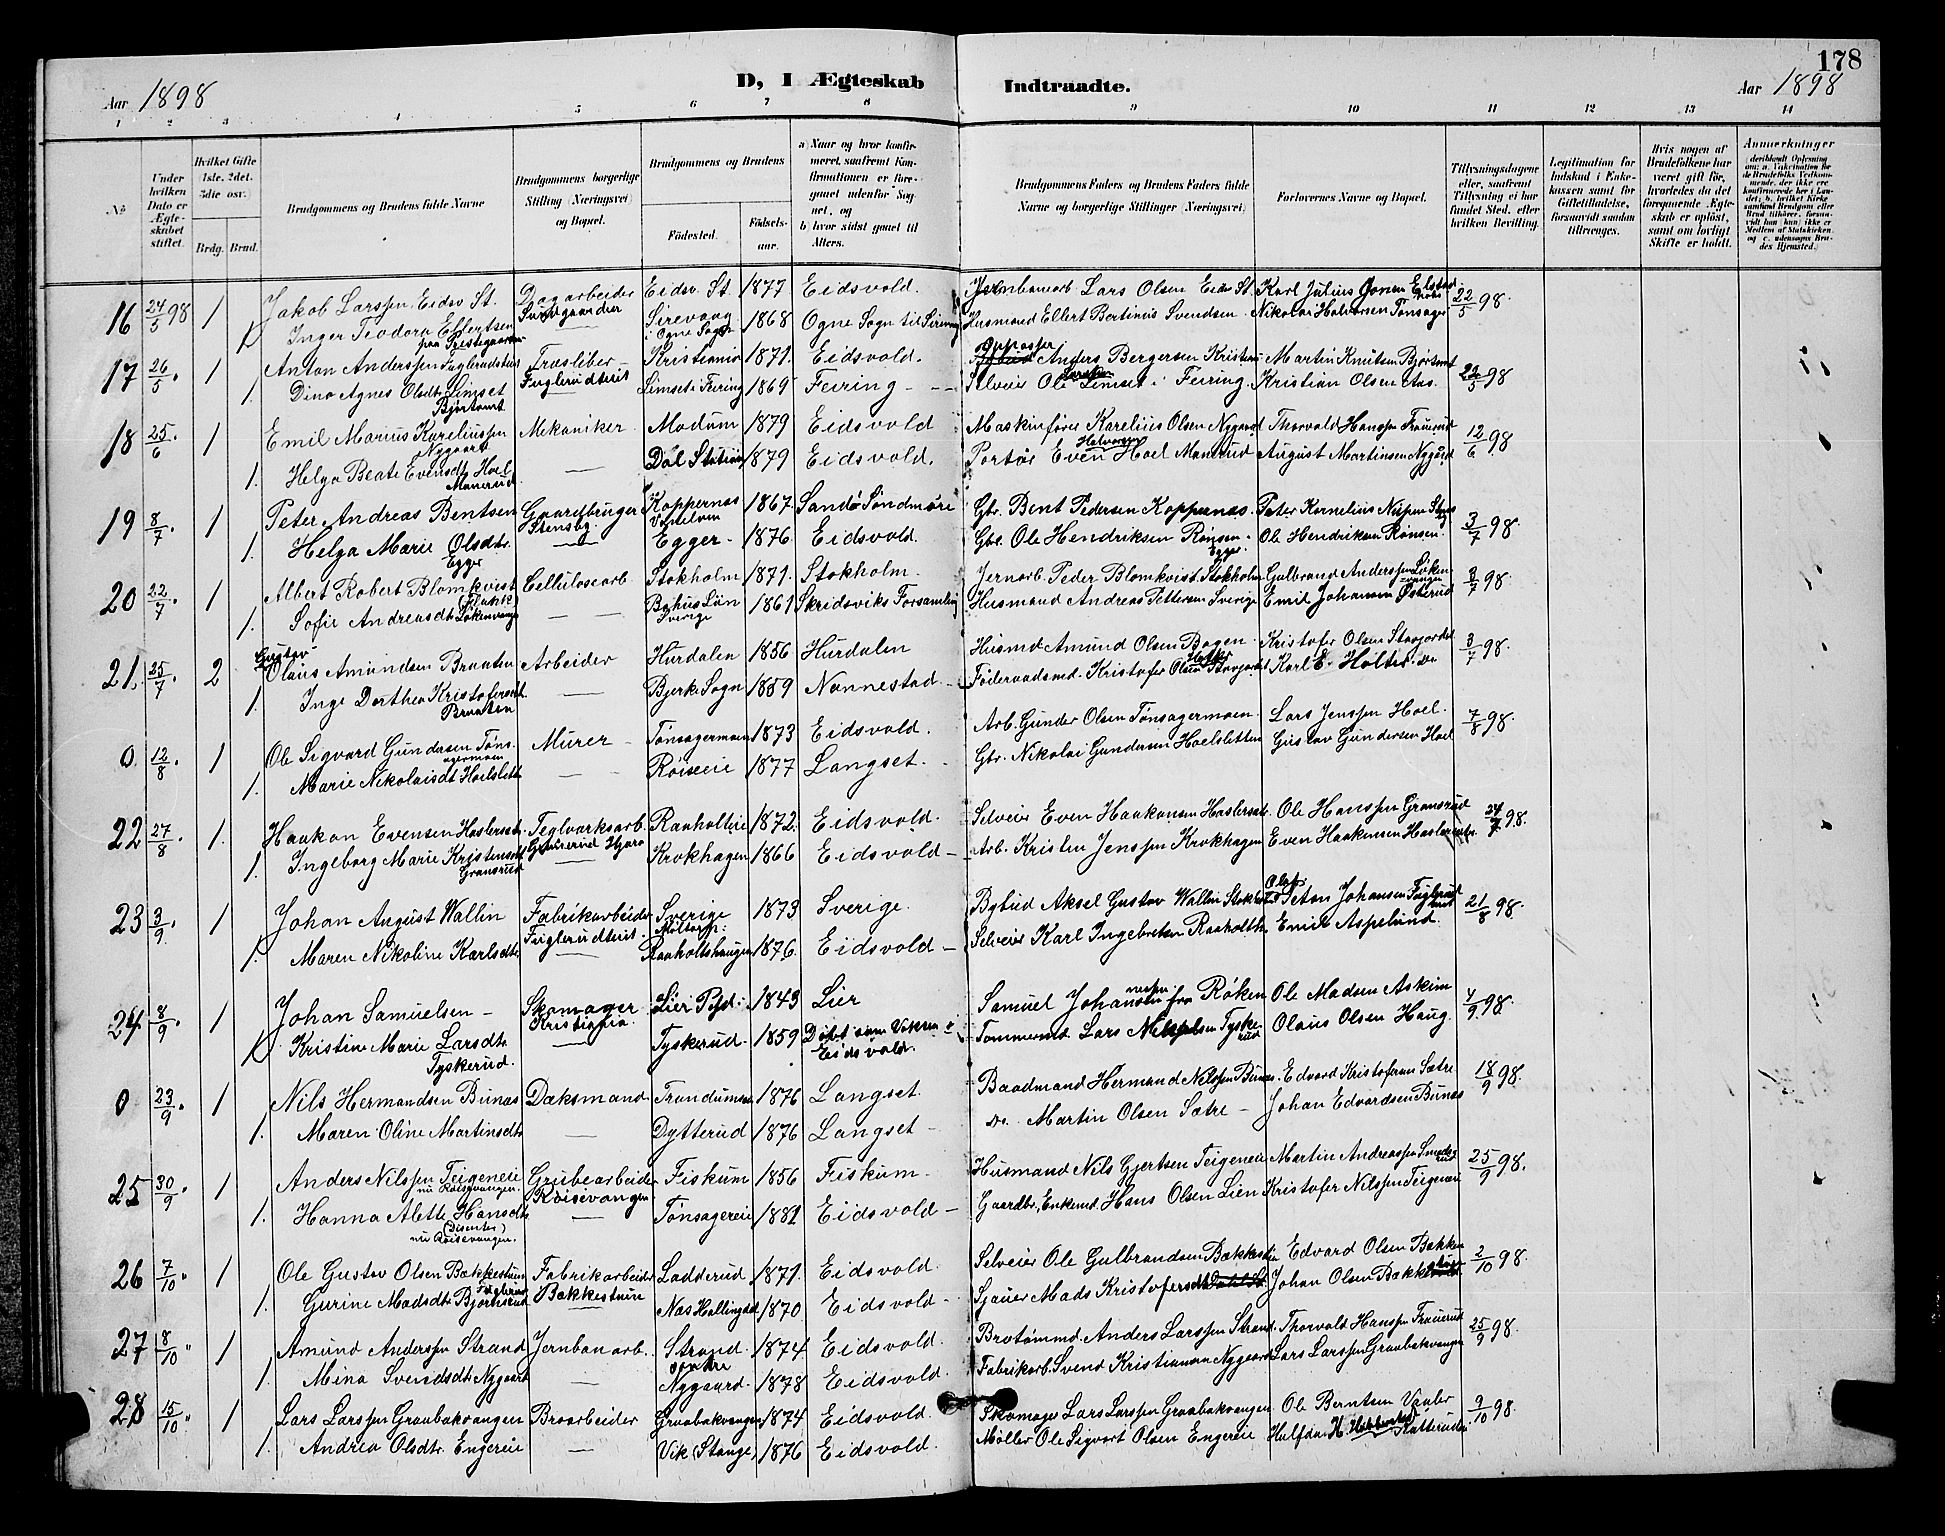 178
Aar 1898
D, I Ægteskab Indtraadte.
Aar 1898
1 2 3 4 5 6 7 8 9 10 11 12 13 14
No
Under hvilken Dato er Ægteskabet stiftet.
Hvilket Gifte 1ste, 2det, 3die osv.
Brdg. Brud.
Brudgommens og Brudens fulde Navne
Brudgommens borgerlige Stilling (Næringsvei) og Bopæl.
Brudgommens og Brudens
Fødested. Fødselsaar.
a) Naar og hvor konfirmeret, saafremt Konfirmationen er foregaaet udenfor Sognet, og
b) hvor sidst gaaet til Alters.
Brudgommens Faders og Brudens Faders fulde Navne og borgerlige Stillinger (Næringsvei)
Forlovernes Navne og Bopæl.
Tillysningsdagene eller, saafremt Tillysning ei har fundet Sted, efter hvilken Bevilling.
Legitimation for Indskud i Enkekassen samt for Giftetilladelse, forsaavidt saadan tiltrænges.
Hvis nogen af Brudefolkene har været gift før, hvorledes da det foregaaende Ægteskab er opløst, samt om lovligt Skifte er holdt.
Anmerkninger
16 24/5 98 1 Jakob Larssen Eidsv St. Dagarbeider Eidsv. St. 1877 Eidsvold. Jernbanearb Lars Olsen Eidsv St. Karl Julius 22/5 98.
1 Inger Teodora Ellertsen Sirevaag Ogne Sogn 1868 Ogne Sogn til Husmand Ellert Bertinius Svendsen Nikolai Halvorsen Tønsager
17 26/5 1 Anton Anderssen Fuglerudteiet Træsliber Kristiania 1871. Eidsvold. Anders Bergersen Kristiania Martin Knutsen Bjørtomt 22/5 98
1. Dina Agnes Olsdtr Limset Bjørtomt Fuglerudteiet Limset i Feiring 1869 Feiring Selveier Ole Larssen Limset i Feiring Kristian Olsen Aas.
18 25/6 1 Emil Marius Kareliussen Nygaard Mekaniker Modum 1879 Eidsvold Maskinfører Karelius Olsen Nygaard Thorvald Hanssen Fraurud 12/6 98
1. Helga Beate Evensdtr Hoel Manerud Dal Station 1879 Eidsvold. Portør Even Halvorsen Hoel Manerud August Martinsen Nygaard
19 8/7 1 Peter Andreas Bentsen Gaardbruger Stensbg. Koppernæs 1867. Sandø Søndmøre Gbr. Bent Pedersen Koppernæs. Peter Kornelius 3/7 98.
1. Helga Marie Olsdtr. Egge Egger 1876 Eidsvold. Gbr. Ole Hendriksen Rønsen Egge. Ole Hendriksen Rønsen.
20 22/7 1 Albert Robert Blomkvist Cellulosearb. Stokholm 1871. Stokholm. Jernarb. Peder Blomkvist Stokholm Gulbrand Anderssen Løkenvangen 3/7 98.
1. Sofie Andreasdtr Løkenvang Bohus Län Sverige 1861 Skridsviks Forsamling Husmand Andreas Pettersen Sverige Emil Johansen Østerud
21. 25/7 2 Gustav Olaus Amundsen Braaten Arbeider Hurdalen 1856 Hurdalen Husmd Amund Olsen Bagen. Kristofer Olsen Starjordet 3/7 98.
1. Inge Dorthea Kristofersdt. Braaten Bjerke Sogn 1859 Nannestad. Føderaadsmd. Kristofer Olsen Holter Starjordet Karl E. Holter Do
0 12/8 1 Ole Sigvard Gundersen Tønsagermoen Murer Tønsagermoen 1873 Eidsvold. Arb. Gunder Olsen Tønsagermoen Lars Jenssen Hoel. 7/8 98.
1. Marie Nikolaisdt Hoelslett Røiseeie 1877 Langset. Gbr. Nikolai Gundersen Hoelsletten Gustav Gundersen Hoel
22 27/8 1. Haakon Evensen Haslersæt Teglværksarb. Raaholteie 1872. Eidsvold. Selveier Even Haakonsen Haslersæt Ole Hanssen Gransrud 24/7 98.
1. Ingeborg Marie Kristensdt Gransrud Krokhagen 1866 Eidsvold Arb. Kristen Jenssen Krokhagen Even Haakonsen Haslersæter
23 3/9. 1 Johan August Wallin Fabrikarbeider Sverige 1873 Sverige. Bybud Aksel Gustav Wallin Olaf Peter Johansen Fuglerud 21/8 98.
1. Maren Nikoline Karlsdtr Fuglerudteiet. Raaholtshaugen 1876. Eidsvold Selveier Karl Ingebretsen Raaholth. Emil Aspelund.
24 8/9. 1 Johan Samuelsen Skomager Kristiania. Lier Pgd. 1843 Lier Samuel Johannessen fra Røken Ole Madsen Askim 4/9 98.
1 Kristine Marie Larsdtr. Tyskerud. Tyskerud. 1859 Døbt som Voksen i Eidsvold. Tømmermd. Lars Tyskerud Olaus Olsen Haug.
0 23/9. 1 Nils Hermandsen Bunæs Dæksmand Trandumsei 1876 Langset. Baadmand Hermand Nilssen Bunæs. Edvard Kristofersen Sætre 18/9 98.
1. Maren Oline Martinsdtr Dytterud 1876 Langset Do. Martin Olsen Sætre Johan Edvardsen Bunæs
25 30/9 1 Anders Nilssen Teigeneie nu Røisevangen. Grubearbeider Røisevangen Fiskum 1856 Fiskum. Husmand Nils Gjertsen Teigeneie Martin Andreassen 25/9 98.
1. Hanna Alette Hansdtr. (Disenter) nu Røisevangen. Tønsagereie 1881 Eidsvold Gaardbr., Enkemd. Hans Olsen Lien Kristofer Nilssen Teigeneie
26 7/10 1 Ole Gustav Olsen Bækkestuen Fabrikarbeider Bækkestuen Ladderud 1871. Eidsvold. Selveier Ole Gulbrandsen Bækkestuen Edvard Olsen Bækken 2/10 98.
1. Gurine Madsdtr Bjørnsrud Næs Hallingdal 1870. Eidsvold Sjauer Mads Kristofersen Johan Olsen
27 8/10 1 Amund Anderssen Strand Jernbanearb. Strand 1874 Eidsvold Brotømmd. Anders Larssen Strand. Thorvald Hanssen Fraurud 25/9 98.
1 Mina Svendsdtr Nygaard søndre Nygaard. 1878 Eidsvold. Fabrikarb. Svend Kristiansen Nygaard Lars Larssen Graabækvangen
28 15/10 1 Lars Larssen Graabækvangen Broarbeider Graabækvangen 1874 Eidsvold. Skomager Lars Larssen Graabækvangen Ole Berntsen Vaaler 9/10 98.
1. Andrea Olsdtr. Engereie Vik (Stange) 1876 Eidsvold. Møller Ole Sigvart Olsen Engereie Halfdan H.